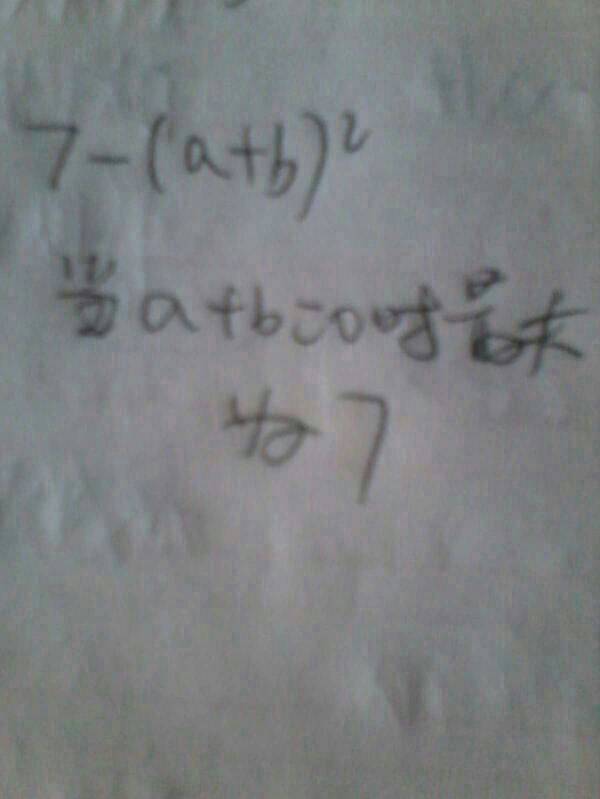 7-(a+b)²
当a+b=0时最大
为7